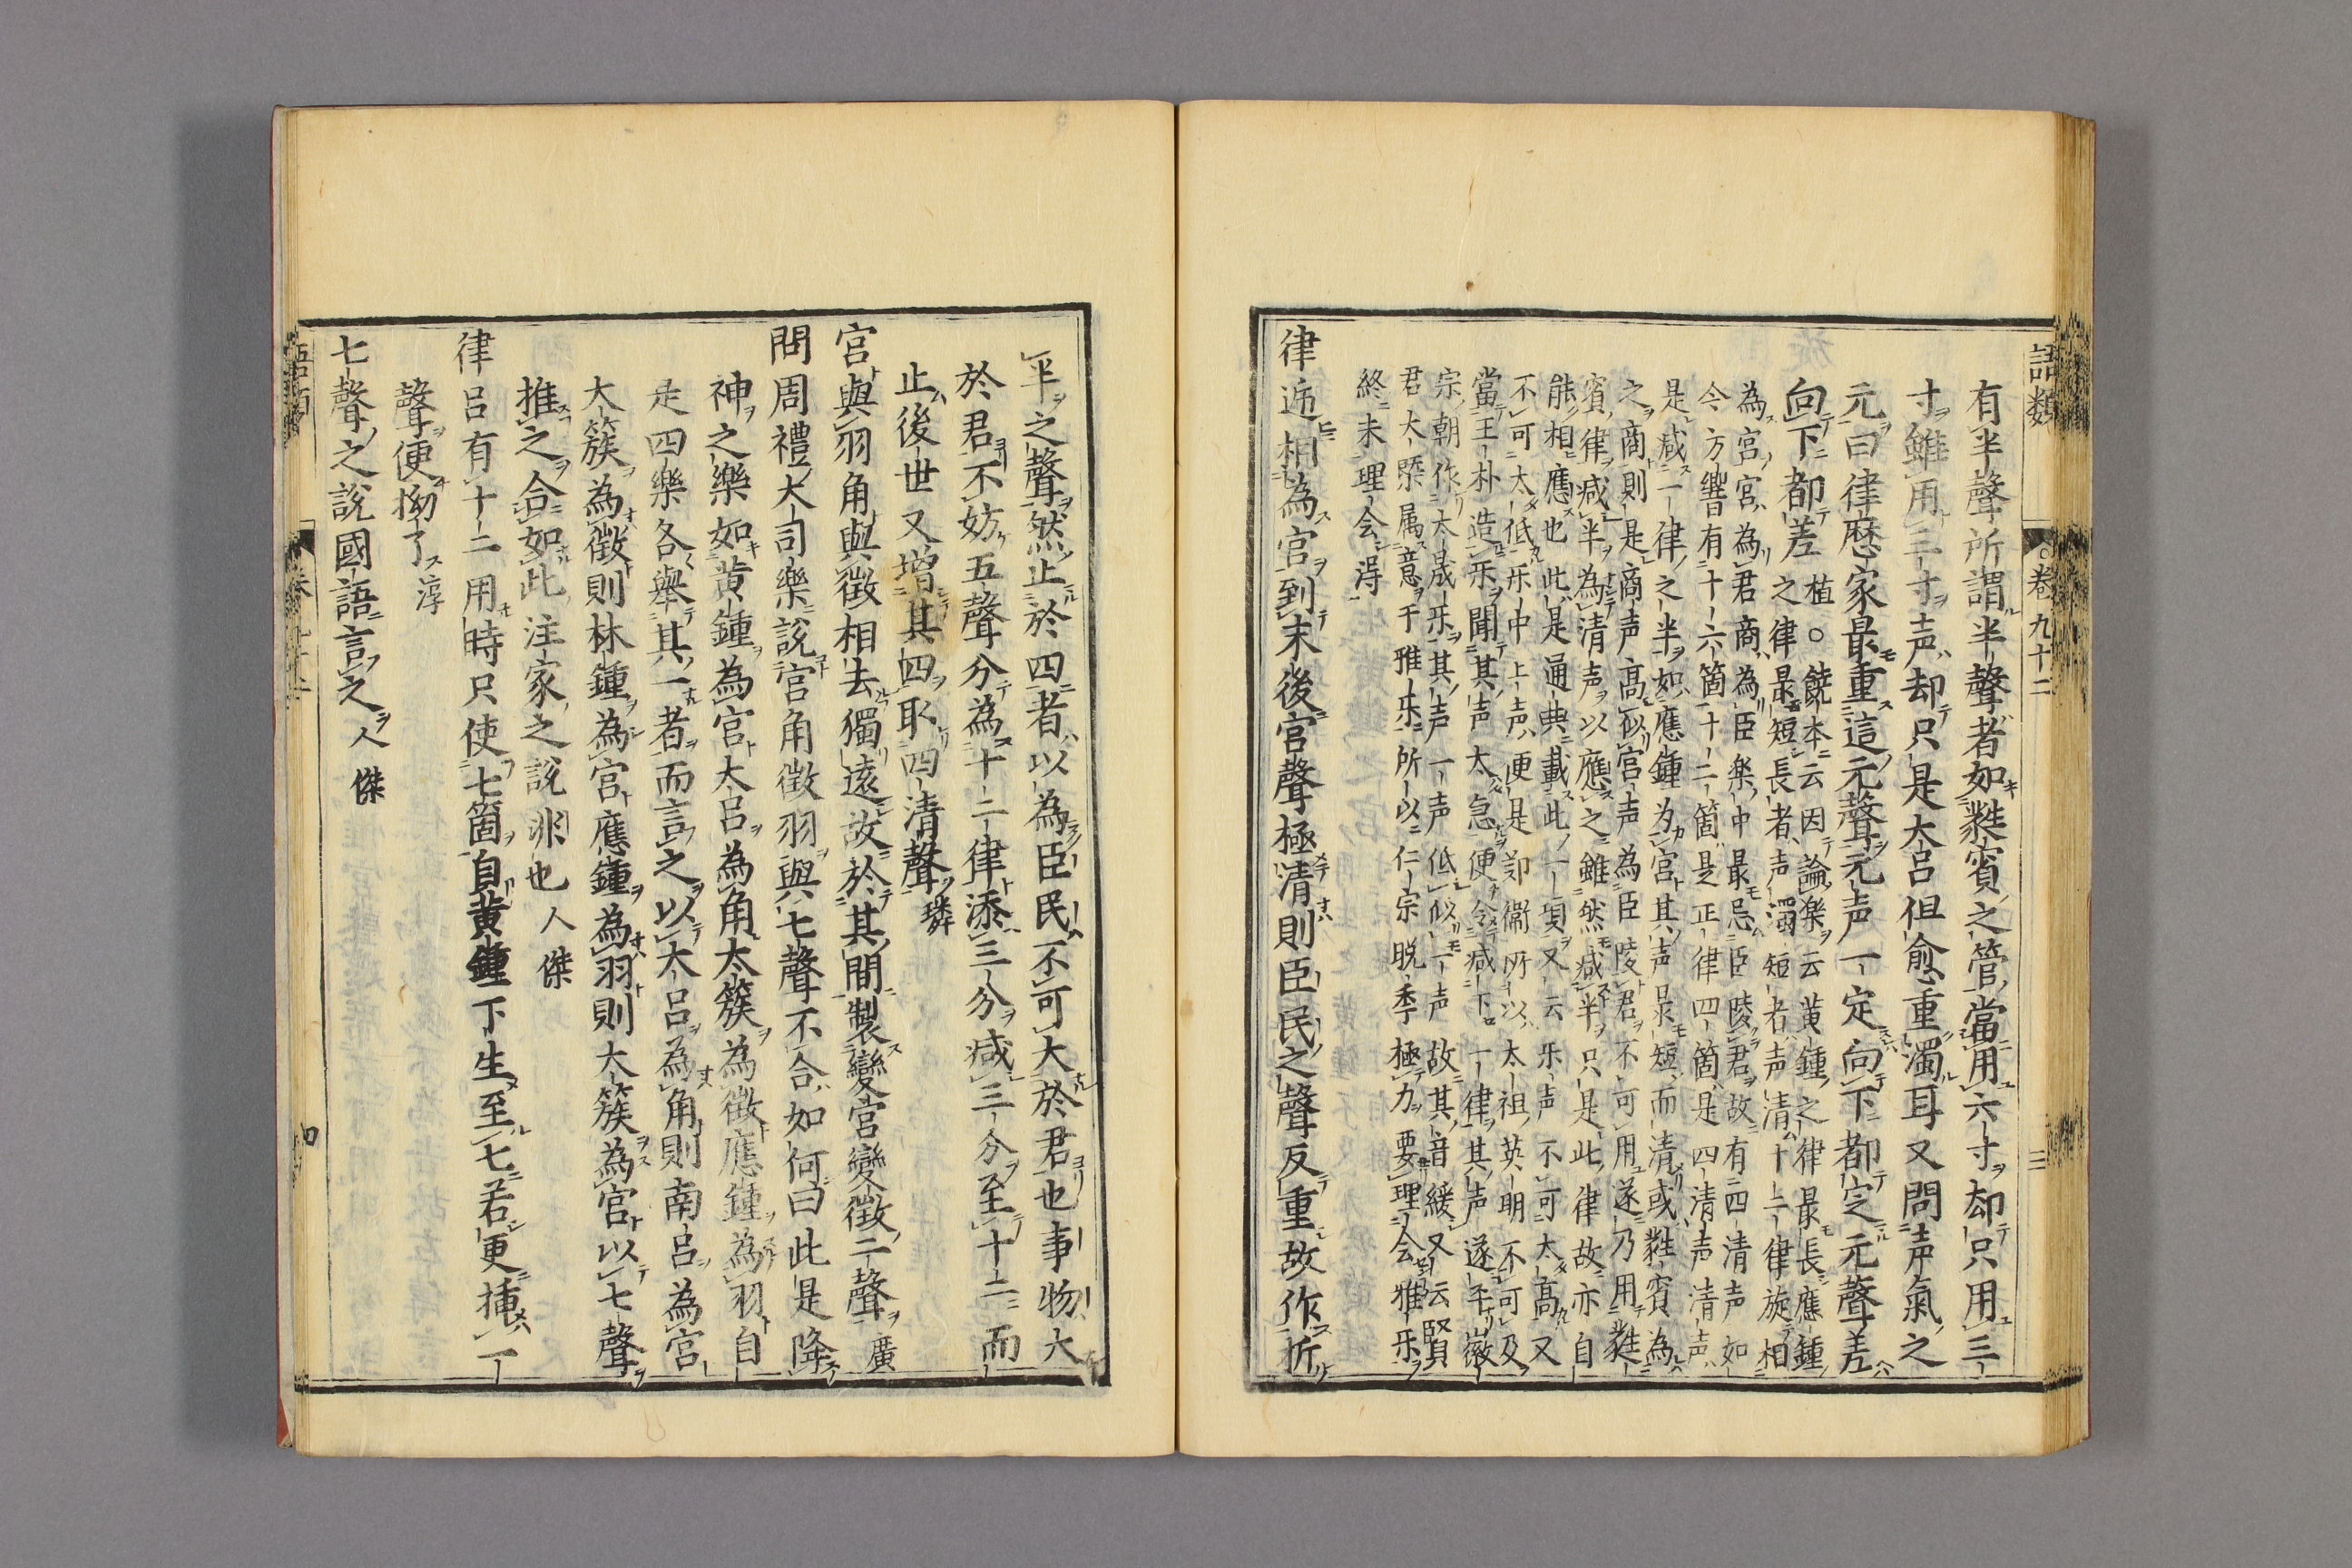 語類
卷九十二
三
有半聲所謂半聲者如蕤賓之管當用六寸却只用三
寸雖用三寸声却只是大呂但愈重濁耳又問声氣之
元曰律暦家最重這元聲元声一定向下都定元聲差
向下都差
植○饒本云因論楽云黄鍾之律最長應鍾
之律最短長者声濁短者声清十二律旋相
為宮宮為君商為臣楽中最忌臣陵君故有四清声如
今方響有十六箇十二箇是正律四箇是四清声清声
是减一律之半如應鍾为宮其声最短而清或蕤賓為
之商則是商声高似宮声為臣陵君不可用遂乃用蕤
賓律减半為清声以應之雖然减半只是此律故亦自
能相應也此是通典載此一項又云乐声不可太高又
不可太低乐中上声便是郑衞所以太祖英明不可及
當王朴造乐聞其声太急便令减下一律其声遂平徽
宗朝作大晟乐其声一声低似一声故其音緩又云賢
君大槩属意于雅乐所以仁宗晚季極力要理会雅乐
終未理会淂
律逓相為宮到末後宮聲極清則臣民之聲反重故作折
半之聲然止於四者以為臣民不可大於君也事物大
於君不妨五聲分為十二律添三分减三分至十二而
止後世又增其四取四清聲 璘
宮與羽角與徴相去獨遠故於其間製變宮變徴二聲 廣
問周禮大司樂説宮角徴羽與七聲不合如何曰此是降
神之樂如黄鍾為宮大呂為角太簇為徴應鍾為羽自
是四樂各舉其一者而言之以大呂為角則南呂為宮
大簇為徴則林鍾為宮應鍾為羽則太簇為宮以七聲
推之合如此注家之說非也 人傑
律呂有十二用時只使七箇自黄鍾下生至七若更插一
聲便拗了 淳
七聲之説國語言之 人傑